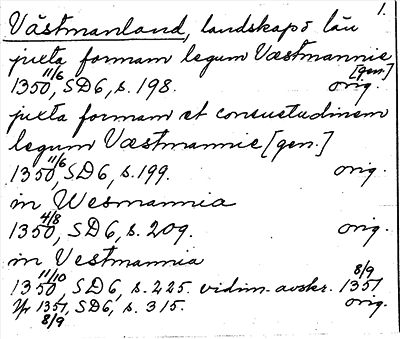 1.
Västmanland, landskap o län
juxta formam legum Væstmannie
[gen.]
1350 11/6, SD6, s. 198. orig.
juxta formam et consuetudinem
legum Væstmannie [gen.]
1350 11/6, SD6, s. 199. orig.
in Wesmannia
1350 4/8, SD6, s. 209. orig.
in Vestmannia
1350 11/10 SD6, s. 225. vidim. avskr. 1351 8/9
Yr 1351 8/9, SD6, s. 315. orig.